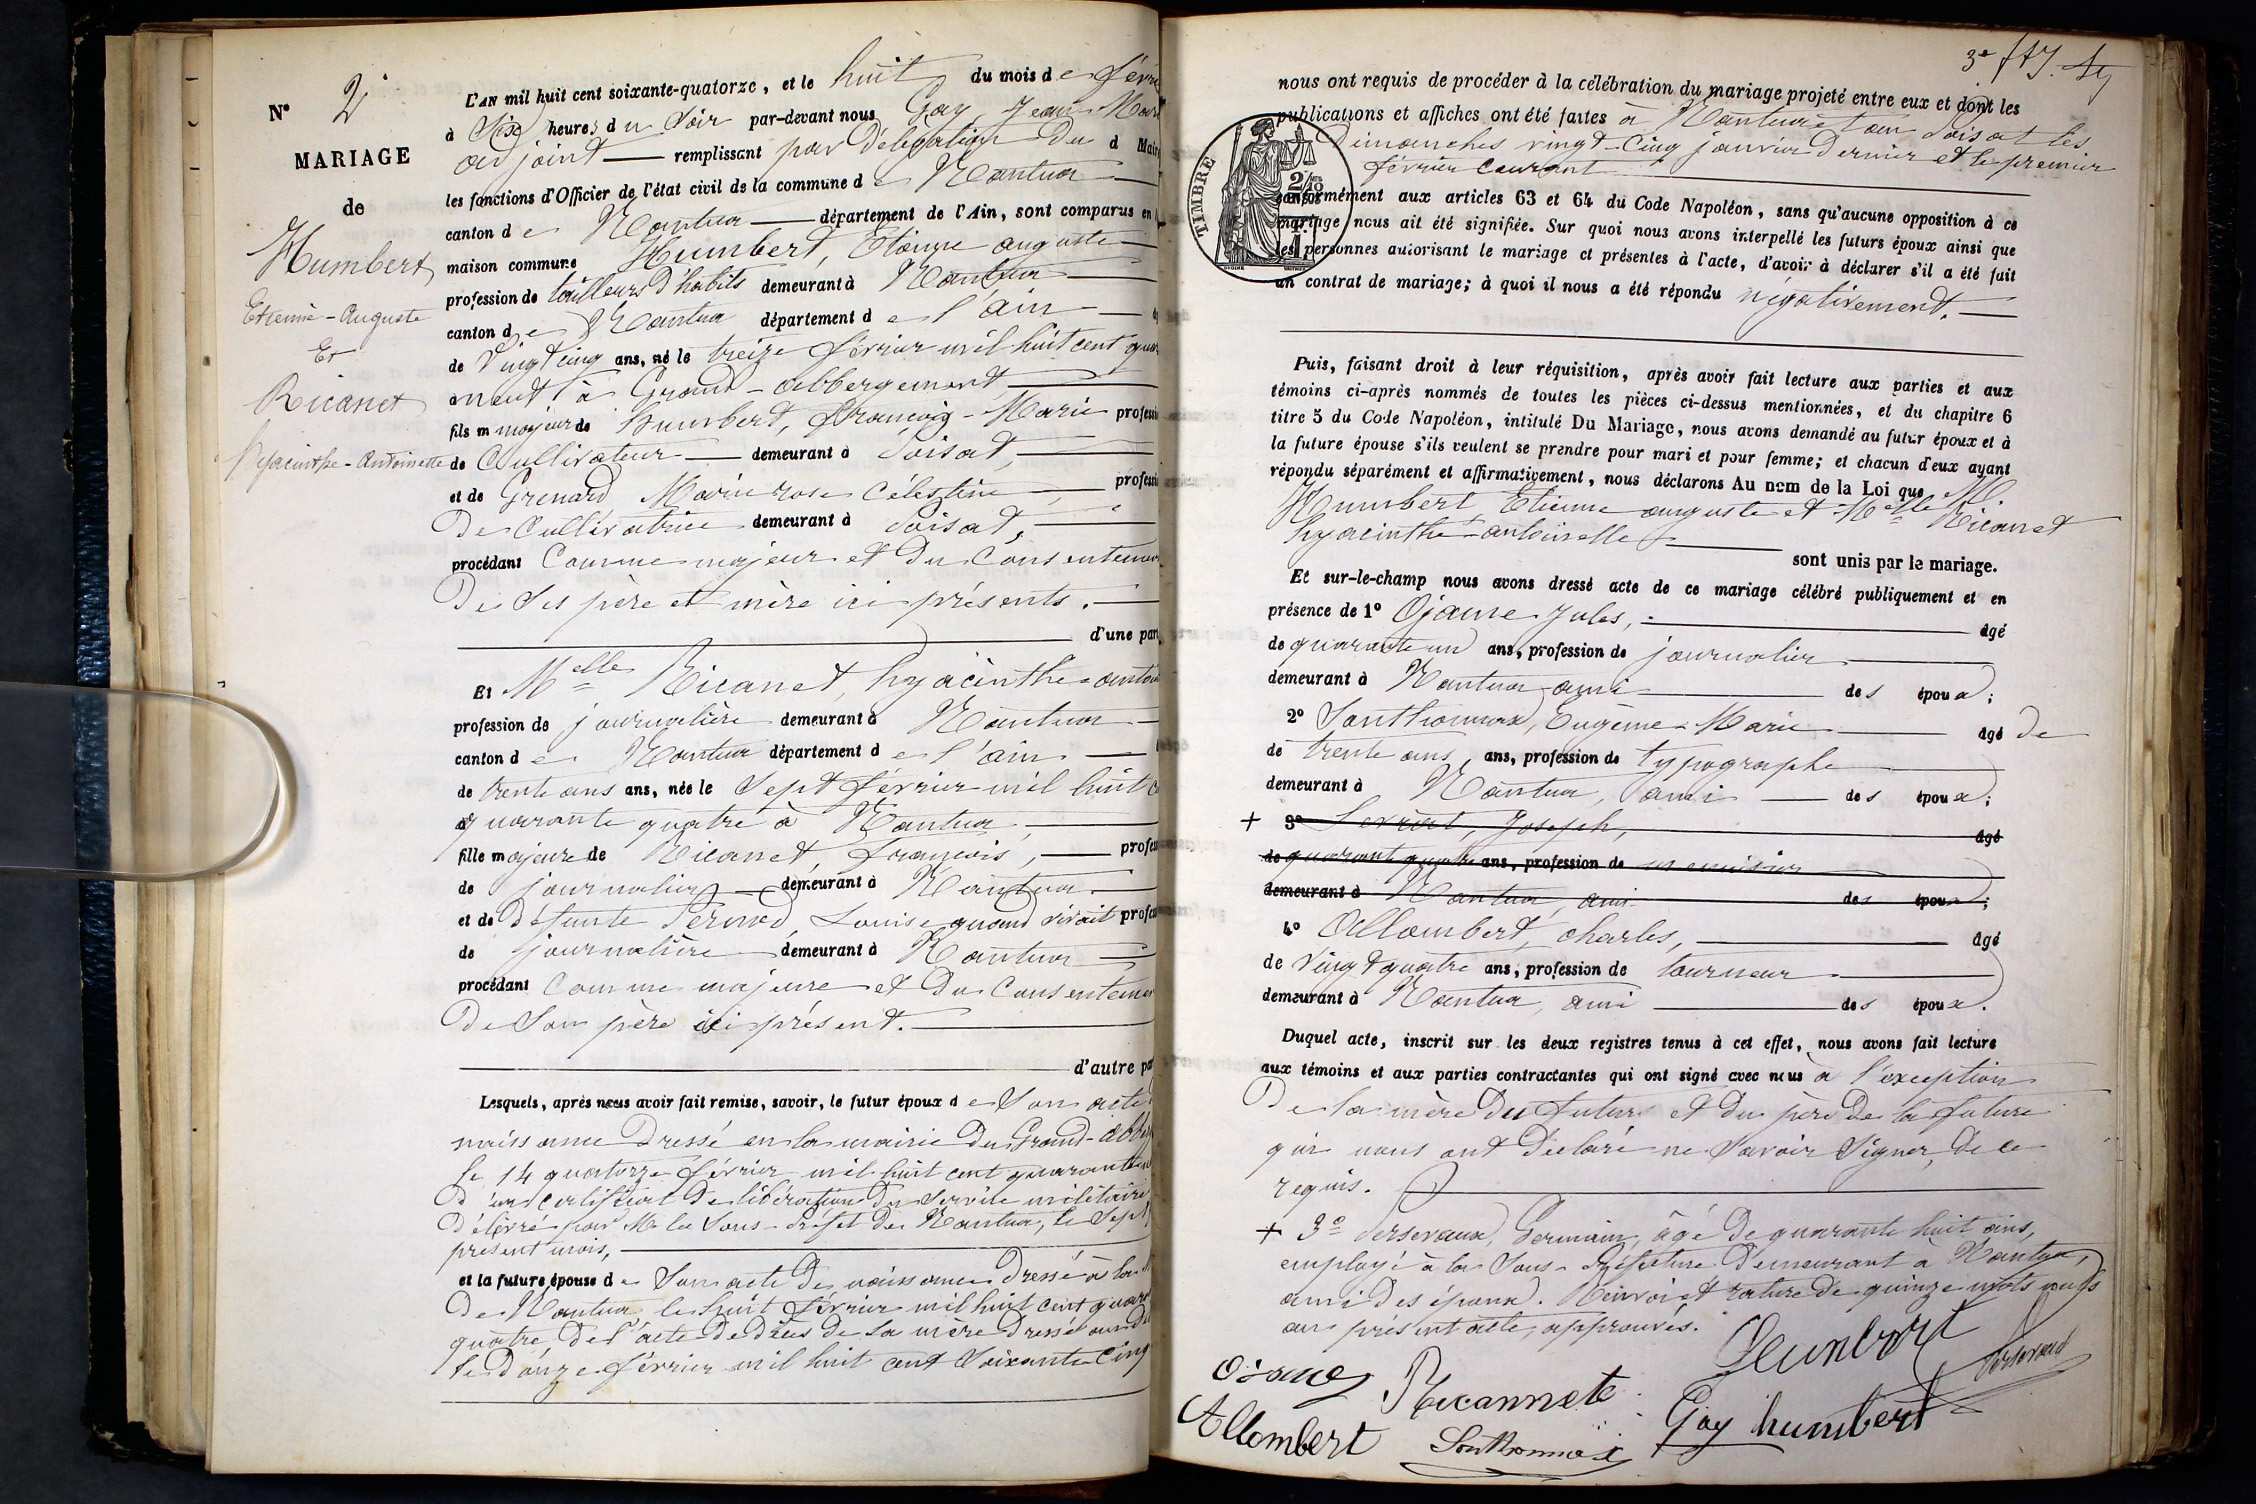 N° 2
MARIAGE
de
Humbert
Etienne-Auguste
Et
Ricanet
hyacinthe-Antoinette
L'AN mil huit cent soixante-quatorze, et le huit du mois de févri
à Six heures du Soir par-devant nous Gay Jean-Mar
adjoint remplissant par Délégation du d Mair
les fonctions d'Officier de l'état civil de la commune de Nantua
canton de Nantua département de l'Ain, sont comparus en
maison commune Humbert, Etienne auguste
profession de tailleurs d'habits demeurant à Nantua
canton de Nantua département de l'ain
de Vingt cinq ans, né le treize février mil huit cent quar
neuf à Grand-abbergement
fils majeur de humbert, François-Marie professi
de Cultivateur demeurant à Soisat,
et de Grenard Marie rose Célestine professi
De Cultivatrice demeurant à Soisat,
procédant Comme majeur et Du Consentemen
De Ses père et mère ici présents.
d'une par
Et Melle Ricanet, hyacinthe-antoi
profession de journalière demeurant à Nantua
canton de Nantua département de l'ain
de trente ans ans, née le Sept février mil huit c
quarante quatre à Nantua
fille majeure de Ricanet, François, profes
de journalier demeurant à Nantua
et de Défunte Louise quand vivait profes
de journalière demeurant à Nantua
procédant Comme majeure et Du Consentemen
De Son père ici présent.
d'autre par
Lesquels, après nous avoir fait remise, savoir, le futur époux de Son acte
naissance Dressé en la mairie du Grand-abber
le 14 quatorze février mil huit cent quarante
D'un certificat De libération Du Service militaire
Délivré par Mr le Sous-Préfet De Nantua, le Sept
présent mois,
et la future épouse de Son acte De naissance Dressé à la
De Nantua le huit février mil huit cent quara
quatre De l'acte De Décès de Sa mère Dressé
le Douze février mil huit cent Soixante Cinq
nous ont requis de procéder à la célébration du mariage projeté entre eux et dont les
publications et affiches ont été faites à Nantua et au Soisat les
Dimanches vingt-Cinq janvier Dernier et le premier
février Courant
conformément aux articles 63 et 64 du Code Napoléon, sans qu'aucune opposition à ce
mariage nous ait été signifiée. Sur quoi nous avons interpellé les futurs époux ainsi que
les personnes autorisant le mariage et présentes à l'acte, d'avoir à déclarer s'il a été fait
un contrat de mariage; à quoi il nous a été répondu négativement.
TIMBRE
2/10
Puis, faisant droit à leur réquisition, après avoir fait lecture aux parties et aux
témoins ci-après nommés de toutes les pièces ci-dessus mentionnées, et du chapitre 6
titre 5 du Code Napoléon, intitulé Du Mariage, nous avons demandé au futur époux et à
la future épouse s'ils veulent se prendre pour mari et pour femme; et chacun d'eux ayant
répondu séparément et affirmativement, nous déclarons Au nom de la Loi que M.
Humbert, Etienne auguste et Melle Ricanet
hyacinthe-antoinette
sont unis par le mariage.
Et sur-le-champ nous avons dressé acte de ce mariage célébré publiquement et en
présence de 1° Ojame Jules, âgé
de quarante un ans, profession de journalier
demeurant à Nantua ami des époux;
2° Sonthonnax, Eugène-Marie âgé de
de trente ans, ans, profession de typographe
demeurant à Nantua, ami des époux;
+ 3° Joseph, âgé
de quarante quatre ans, profession de menuisier
demeurant à Nantua, ami des époux;
4° Allombert, charles, âgé
de Vingt quatre ans, profession de tourneur
demeurant à Nantua, ami des époux.
Duquel acte, inscrit sur les deux registres tenus à cet effet, nous avons fait lecture
aux témoins et aux parties contractantes qui ont signé avec nous à l'exception
De la mère Du futur et Du père De la future
qui nous ont Déclaré ne Savoir Signer, De ce
requis.
+ 3° Persevaux, Germain, âgé De quarante huit ans,
employé à la Sous-Préfecture Demeurant à Nantua,
ami des époux. Renvoi et rature De quinze mots nuls
au présent acte, approuvés.
Ojame Ricannete Humbert Persevaud
Allombert Sonthonnax Gay humbert